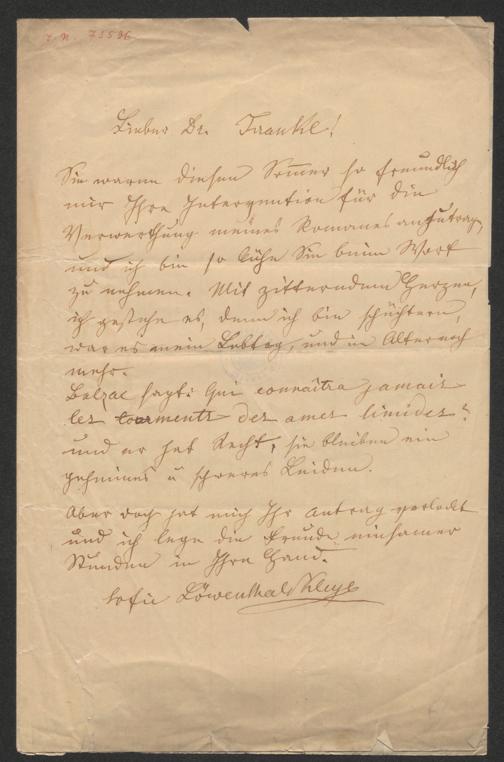 I. N. 75596
Lieber Dr. Frankl!
Sie waren diesen Som̅er so freundlich
mir Ihre Intervention für die
Verwerthung meines Romanes anzutragen,
und ich bin so kühn Sie beim Wort
zu nehmen. Mit zitterndem Herzen,
ich gestehe es, denn ich bin schüchtern,
war es mein Lebtag, und im Alter noch
mehr.
Balzac sagt: Qui connaîtra jamais
les tourments des ames timides?
und er hat Recht, sie bleiben ein
geheimes u schweres Leiden.
Aber doch hat mich Ihr Antrag verlockt
und ich lege die Freude einsamer
Stunden in Ihre Hand.
Sofie Löwenthal Kleyle